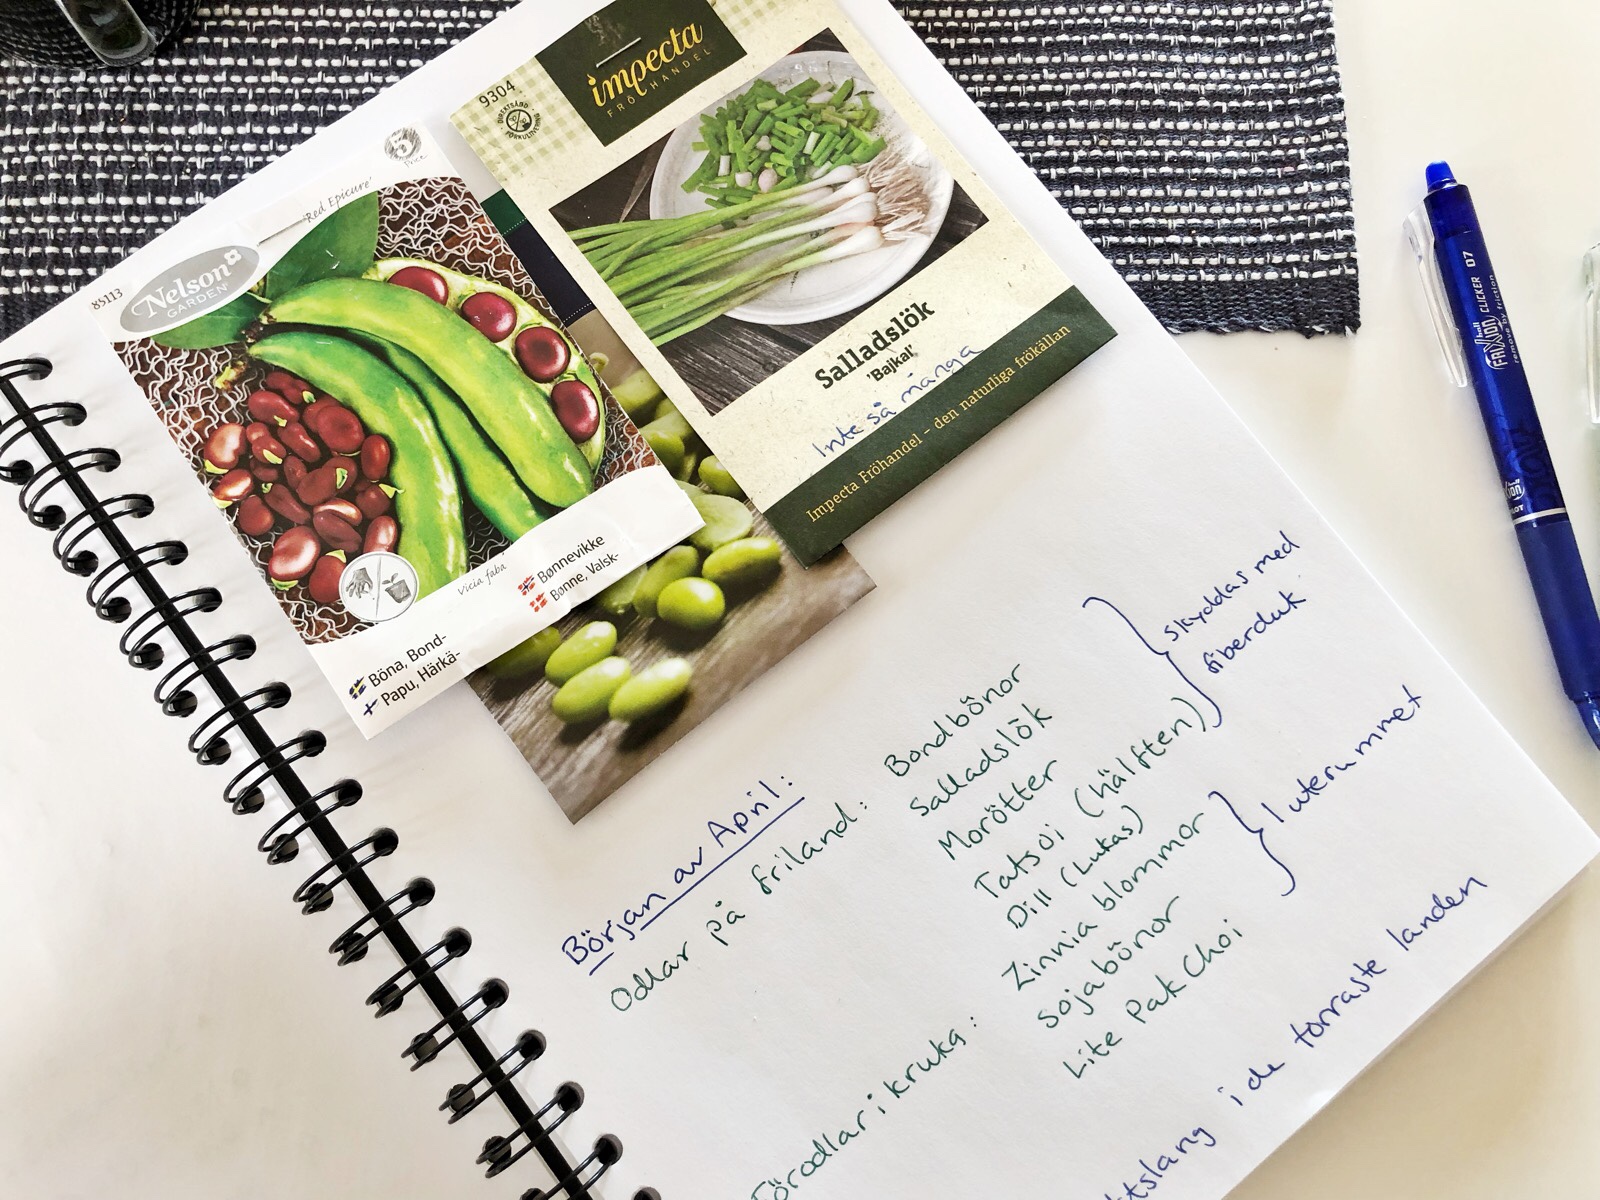 impecta
FRÖHANDEL
9304
DIREKTSÅDD
FÖRKULTIVERING
Salladslök
'Bajkal'
Inte så många
Impecta Fröhandel – den naturliga frökällan
5
Price
'Red Epicure'
85113
Nelson
GARDEN
Vicia faba
Bønnevikke
Bønne, Valsk-
Böna, Bond-
Papu, Härkä-
FRIXION ball CLICKER 07
remove by friction
Början av April:
Odlar på friland: Bondbönor
Salladslök
Morötter
Tatsoi (hälften)
Dill (Lukas)
skyddas med
fiberduk
Förodlar i kruka: Zinnia blommor
Sojabönor
Lite Pak Choi
I uterummet
i de torraste landen